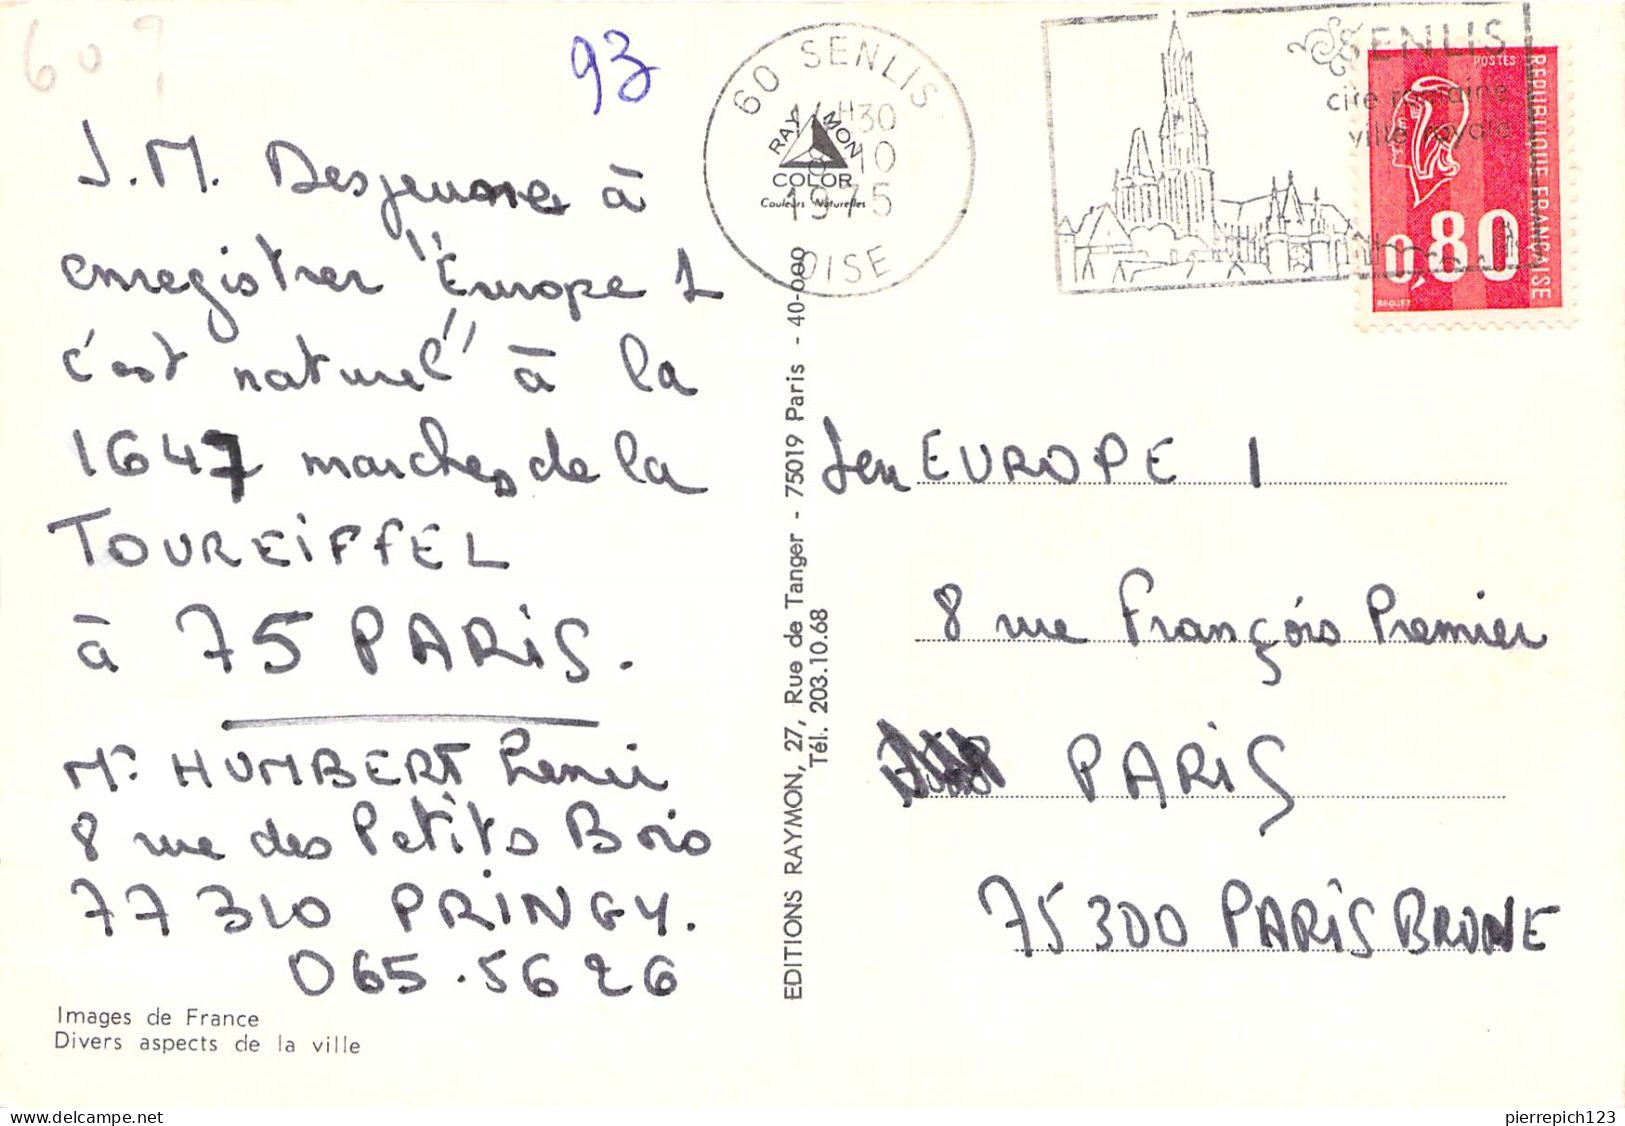 609
93
J.M. Desjeunes à
enregistrer "Europe 1
c'est naturel" à la
1647 marches de la
TOUREIFFEL
à 75 PARIS.
Mr HUMBERT
8 rue des Petits Bois
77310 PRINGY.
065.5626
Images de France
Divers aspects de la ville
60 SENLIS
H30
10
1975
OISE
RAYMON
COLOR
Couleurs Naturelles
EDITIONS RAYMON, 27, Rue de Tanger - 75019 Paris - 40-000
Tél. 203.10.68
SENLIS
cité romaine
ville royale
POSTES
REPUBLIQUE FRANCAISE
0,80
BEQUET
Jeu EUROPE 1
8 rue François Premier
PARIS
75300 PARIS BRUNE
delcampe.net
pierrepich123